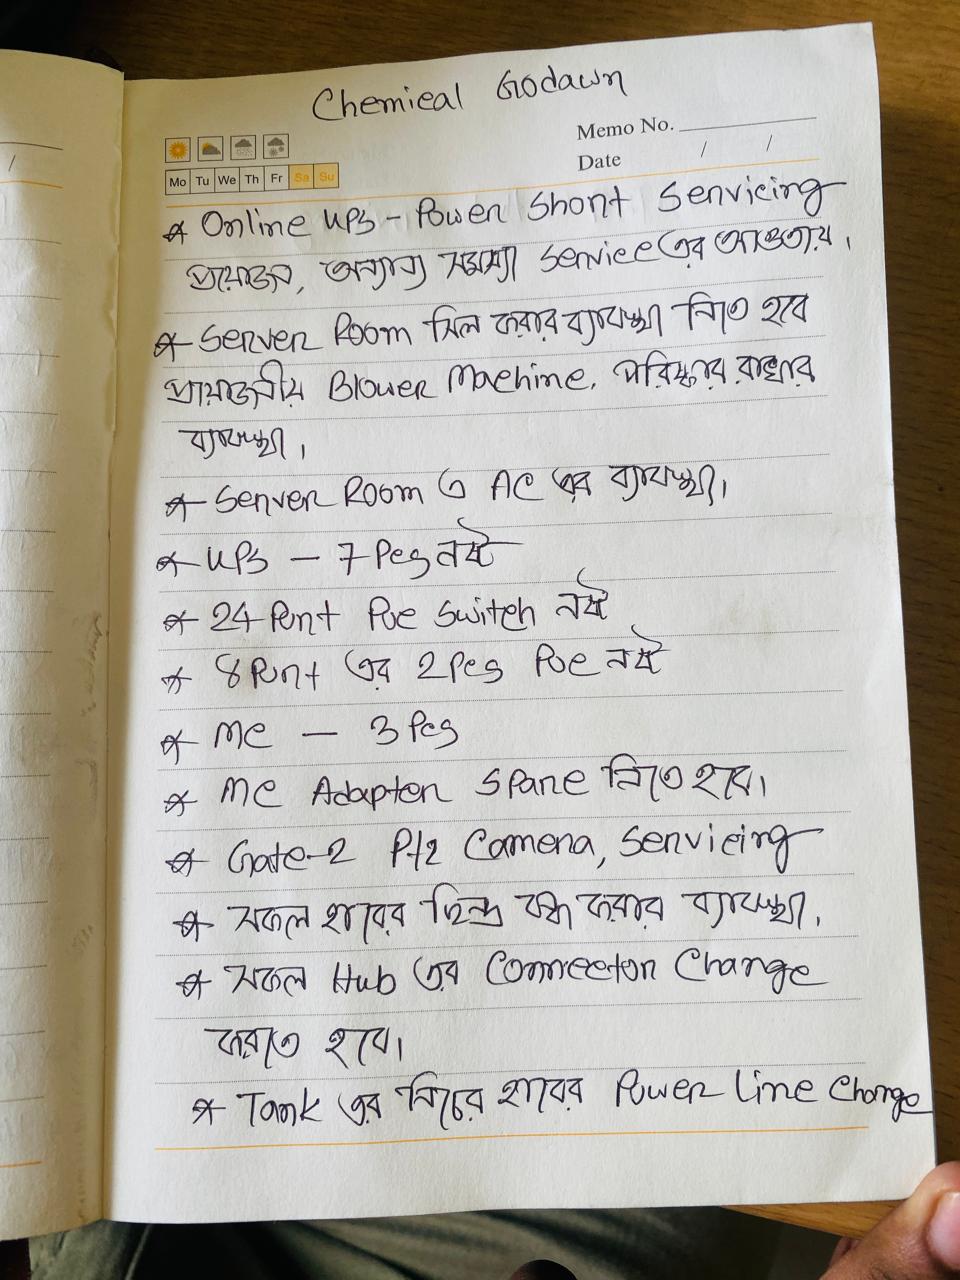 Chemical Godawn
Memo No.
Date / /
Mo Tu We Th Fr Sa Su
* Online UPS - Power Short Servicing
প্রয়োজন, অন্যান্য সমস্যা Service এর আওতায়।
* Server Room সিল করার ব্যাবস্থা নিতে হবে
প্রয়োজনীয় Blower Machine. পরিষ্কার রাখার
ব্যাবস্থা।
* Server Room এ AC এর ব্যাবস্থা।
* UPS – 7 Pcs নষ্ট
* 24 Port Poe Switch নষ্ট
* 8 Port এর 2 Pcs Poe নষ্ট
* MC – 3 Pcs
* MC Adapter Spare নিতে হবে।
* Gate-2 Ptz Camera, Servicing
* সকল হাবের ছিদ্র বন্ধ করার ব্যাবস্থা।
* সকল Hub এর Connector Change
করতে হবে।
* Tank এর নিচের হাবের Power Line Change